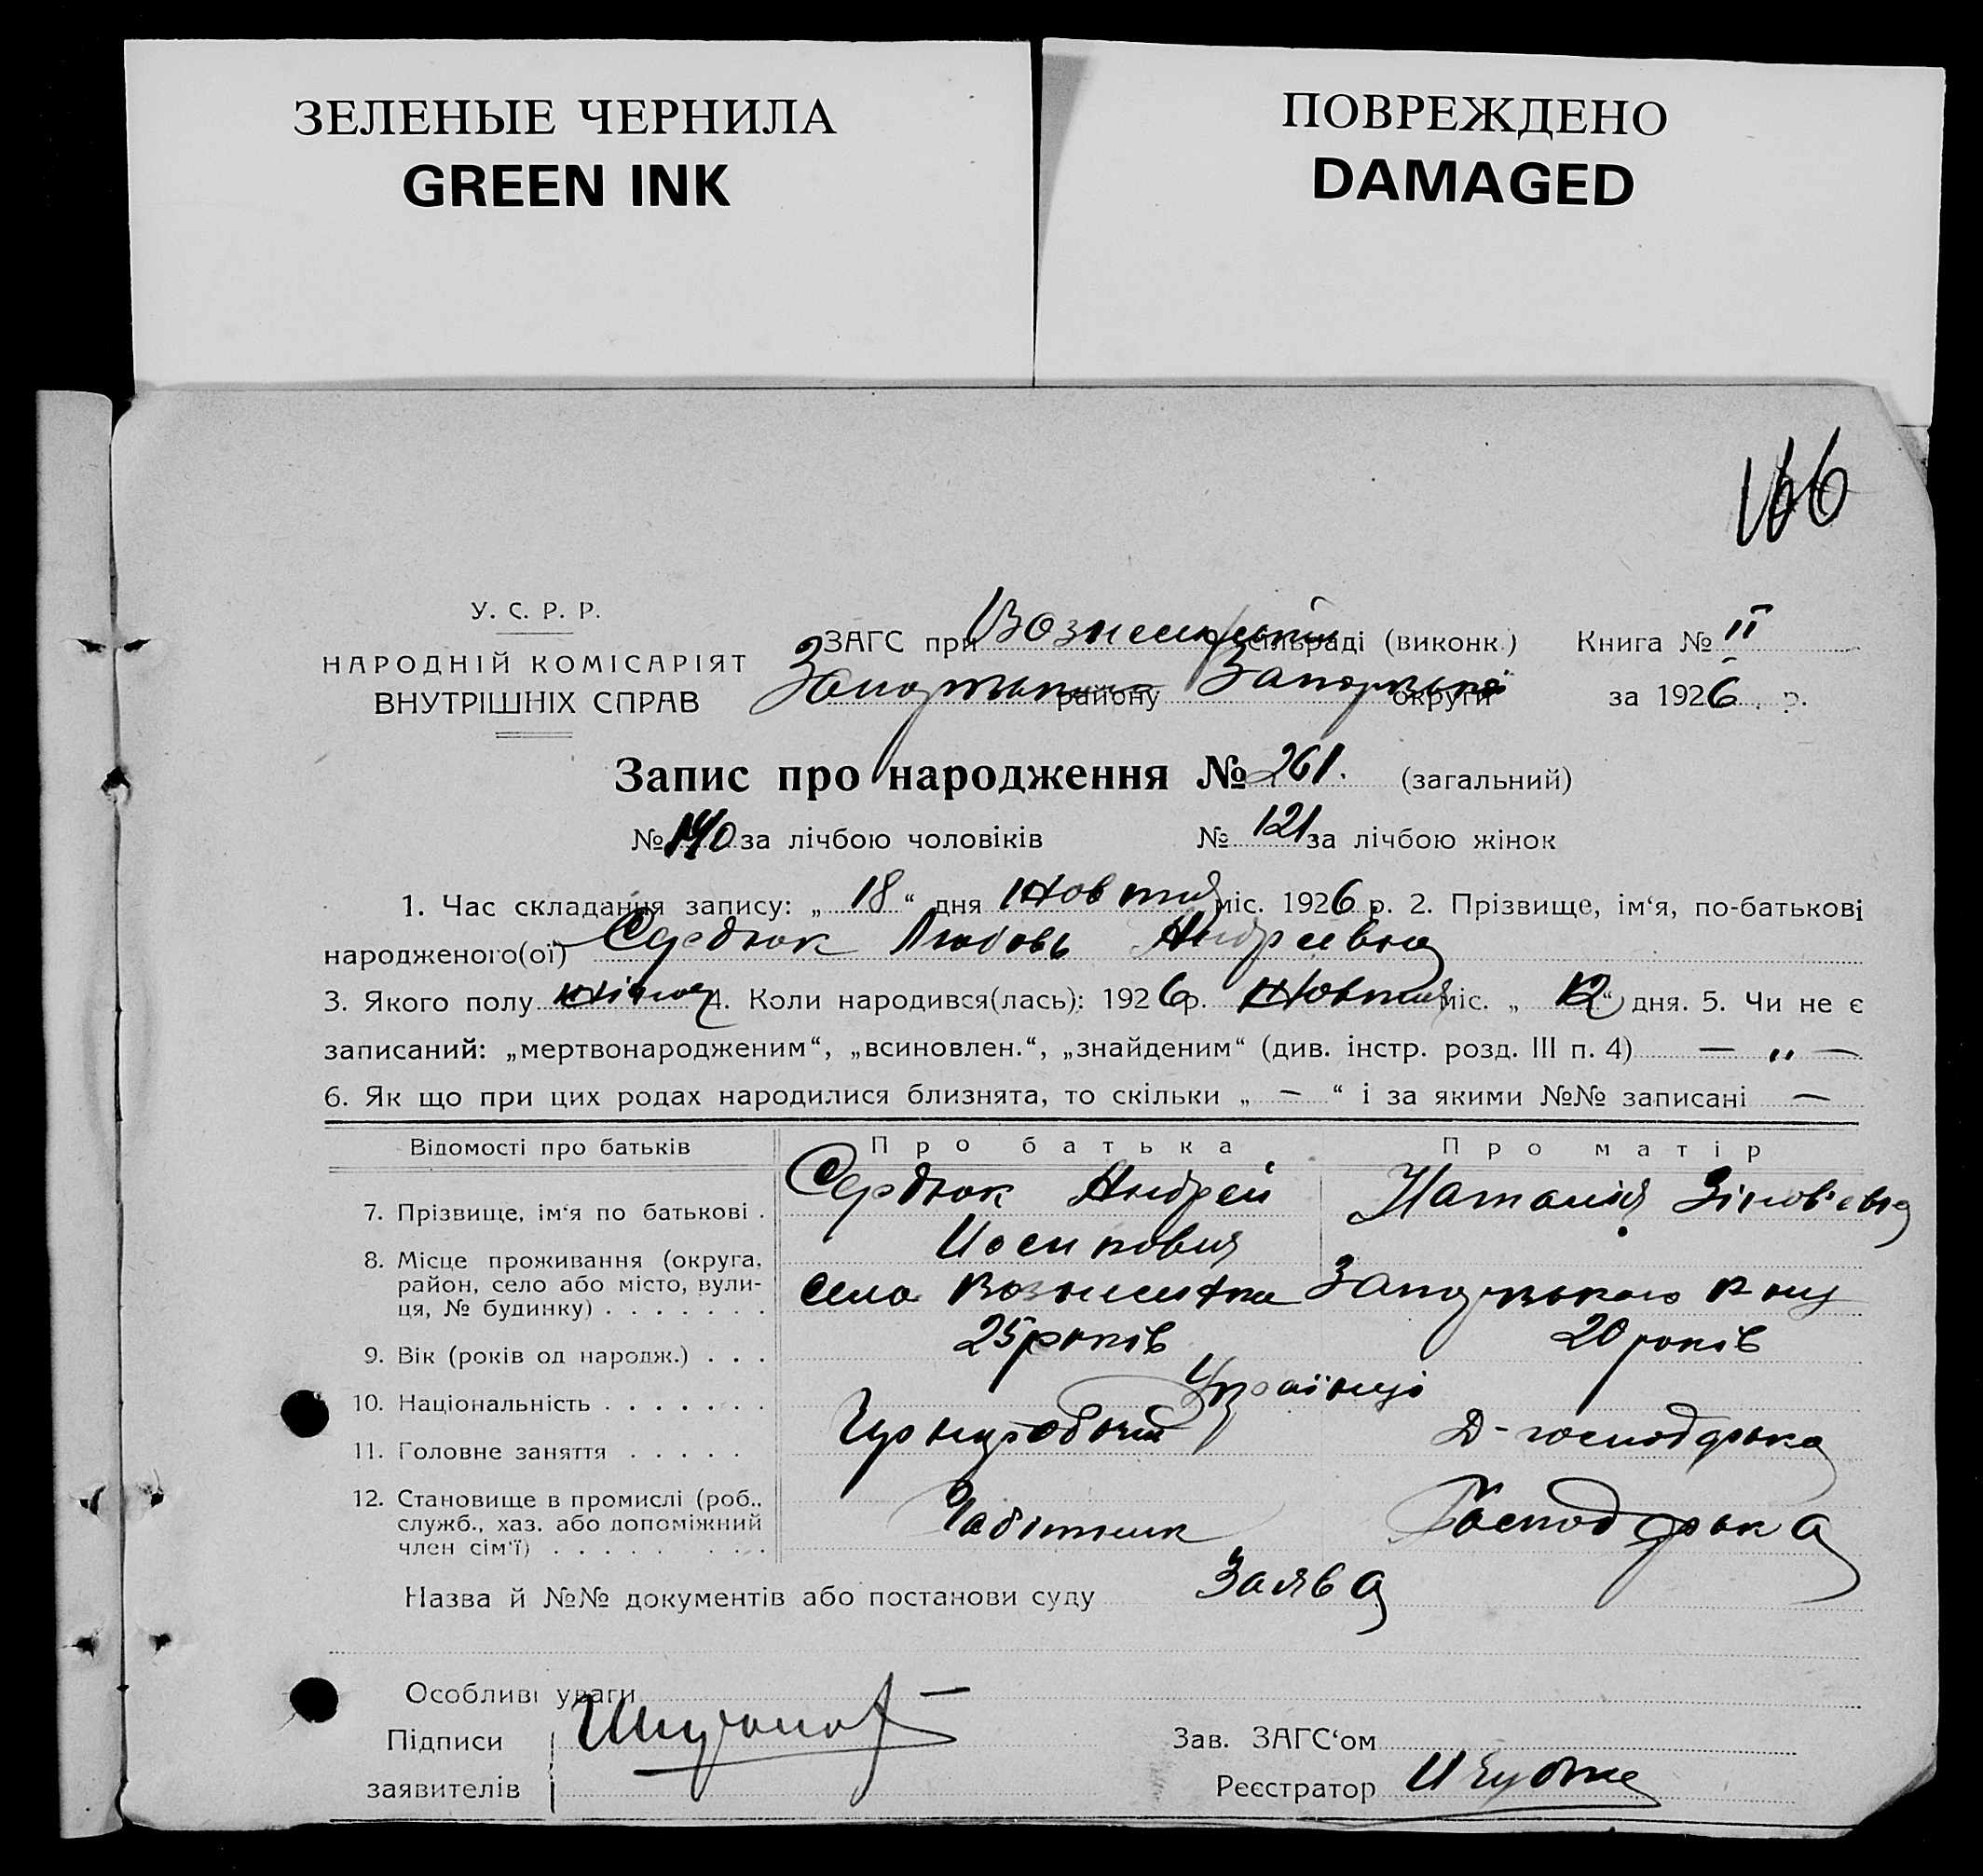 ЗЕЛЕНЫЕ ЧЕРНИЛА
GREEN INK
ПОВРЕЖДЕНО
DAMAGED
166
У. С. Р. Р.
НАРОДНІЙ КОМІСАРІЯТ
ВНУТРІШНІХ СПРАВ
ЗАГС при сільраді (виконк.) Книга № II
району округи за 1926 р.
Запис про народження № 261. (загальний)
№ 140 за лічбою чоловіків № 121 за лічбою жінок
1. Час складання запису: „ 18 “ дня Жовтня міс. 1926 р. 2. Прізвище, ім‘я, по-батькові
народженого(ої) Сердюк Любовь Андреевна
3. Якого полу жіноч 4. Коли народився(лась): 1926 р. Жовтня міс. „ 12 “ дня. 5. Чи не є
записаний: „мертвонародженим“, „всиновлен.“, „знайденим“ (див. інстр. розд. III п. 4) — „ —
6. Як що при цих родах народилися близнята, то скільки „ — “ і за якими №№ записані —
Відомості про батьків Про батька Про матір
7. Прізвище, ім‘я по батькові . Сердюк Андрей Наталія Зінов'євна
Иосипович
8. Місце проживання (округа,
район, село або місто, вули-
ця, № будинку) . . . . . . . село Вознесенка Запорізького р-ну
9. Вік (років од народж.) . . . 25 років 20 років
10. Національність . . . . . . . Українці
11. Головне заняття . . . . . Д-господарка
12. Становище в промислі (роб.,
служб., хаз. або допоміжний
член сім‘ї) . . . . . . . . Робітник Господарка
Назва й №№ документів або постанови суду Заява
Особливі уваги —
Підписи
заявителів
Зав. ЗАГС‘ом
Реєстратор